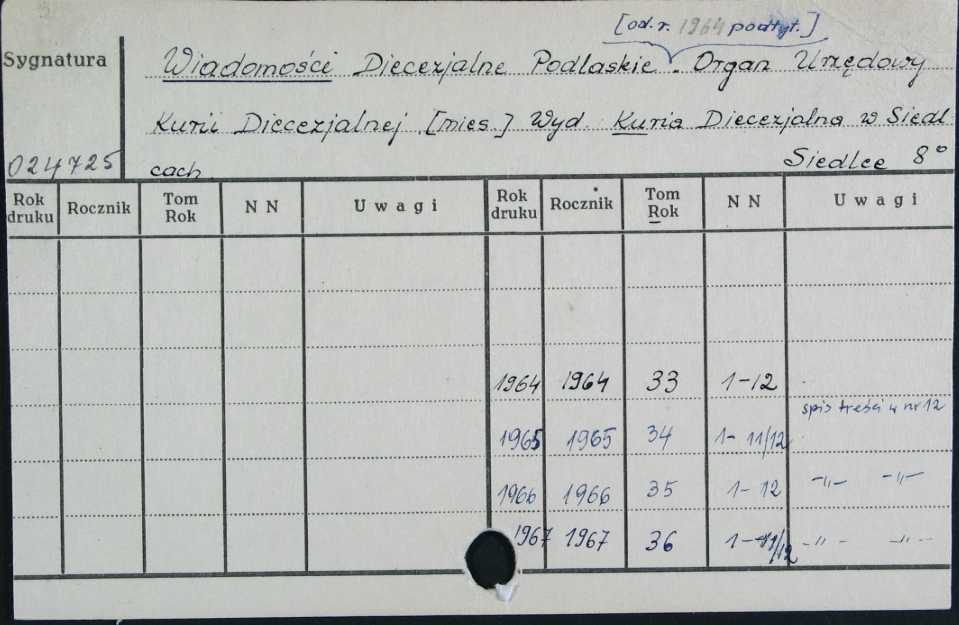 [od. r. 1964 podtyt.]
Sygnatura
Wiadomości Diecezjalne Podlaskie. Organ Urzędowy
Kurii Diecezjalnej [mies.] Wyd. Kuria Diecezjalna w Siedl
024725 cach. Siedlce 8°
Rok druku Rocznik Tom Rok NN Uwagi Rok druku Rocznik Tom Rok NN Uwagi
1964 1964 33 1-12
spis treści w nr 12
1965 1965 34 1-11/12
1966 1966 35 1-12 -"- -"-
1967 1967 36 1-11/12 -"- -"-